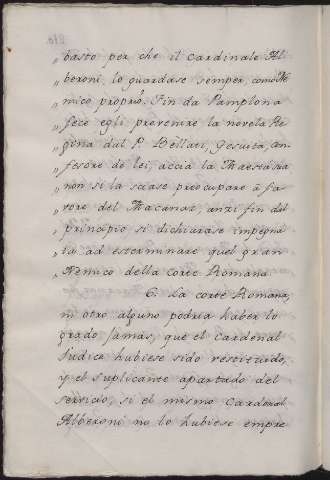 „ basto per che il cardinale Al-
„ beroni, lo guardase semper, como Ne
„ mico proprio. Fin da Pamplona
„ fece egli prevenire la novela Re
„ gina dal P. Bellati, Gesuita, con
„ fesore de lei, accia la Maesta sua
„ non si la sciase preocupare à fa
„ vore del Macanas, anzi fin dal
„ principio si dichiarase impegna
„ ta ad esterminare quel gran
„ Nemico della corte Romana
6. La corte Romana,
ni otro alguno podria haber lo
grado Jamàs, que el Cardenal
Judice hubiese sido restituido,
y el suplicante apartado del
servicio, si el mismo Cardenal
Alberoni no lo hubiese empre